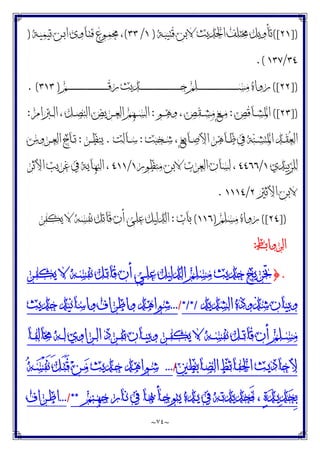 ([٢١]) تأويل مختلف الحديث لابن قتيبة (١/ ٣٣)، مجموع فتاوى ابن تيمية (
١٣٧/٣٤).
([٢٢]) رواه مسلم حديث رقم (٣١٣).
([٢٣]) المشاقص: مع مشقص، وهو: السهم العريض النصل، البراجم:
العقد المتشنجة في ظاهر الأصابع، شخبت: سالت. ينظر: تاج العروس
للزبيدي ٤٤٦٦/١، لسان العرب لابن منظور ٤١١/١، النهاية في غريب الأثر
لابن الأثير ١١١٤/٢.
([٢٤]) رواه مسلم (١١٦) باب: الدليل على أن قاتل نفسه لا يكفر
الروابط:
تخريج حديث مسلم الدليل على أن قاتل نفسه لا يكفر
وبيان شذوذه الشديد /*/... شواهد واطراف واسانيد حديث
مسلم أن قاتل نفسه لا يكفر وبيان تفرد الراوي له مخالفا
لأحاديث الحفاظ الضابطين /... شواهد حديث من قتل نفسه
بحديدة، فحديدته في يده يتوجأ بها في نار جهنم **/... اطراف
~٧٤~